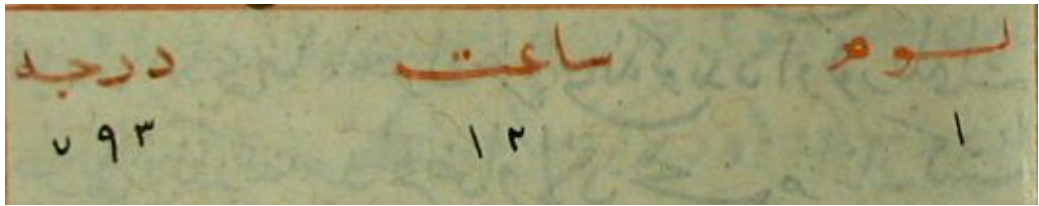 يوم ساعت درجه
١ ١٢ ٧٩٣